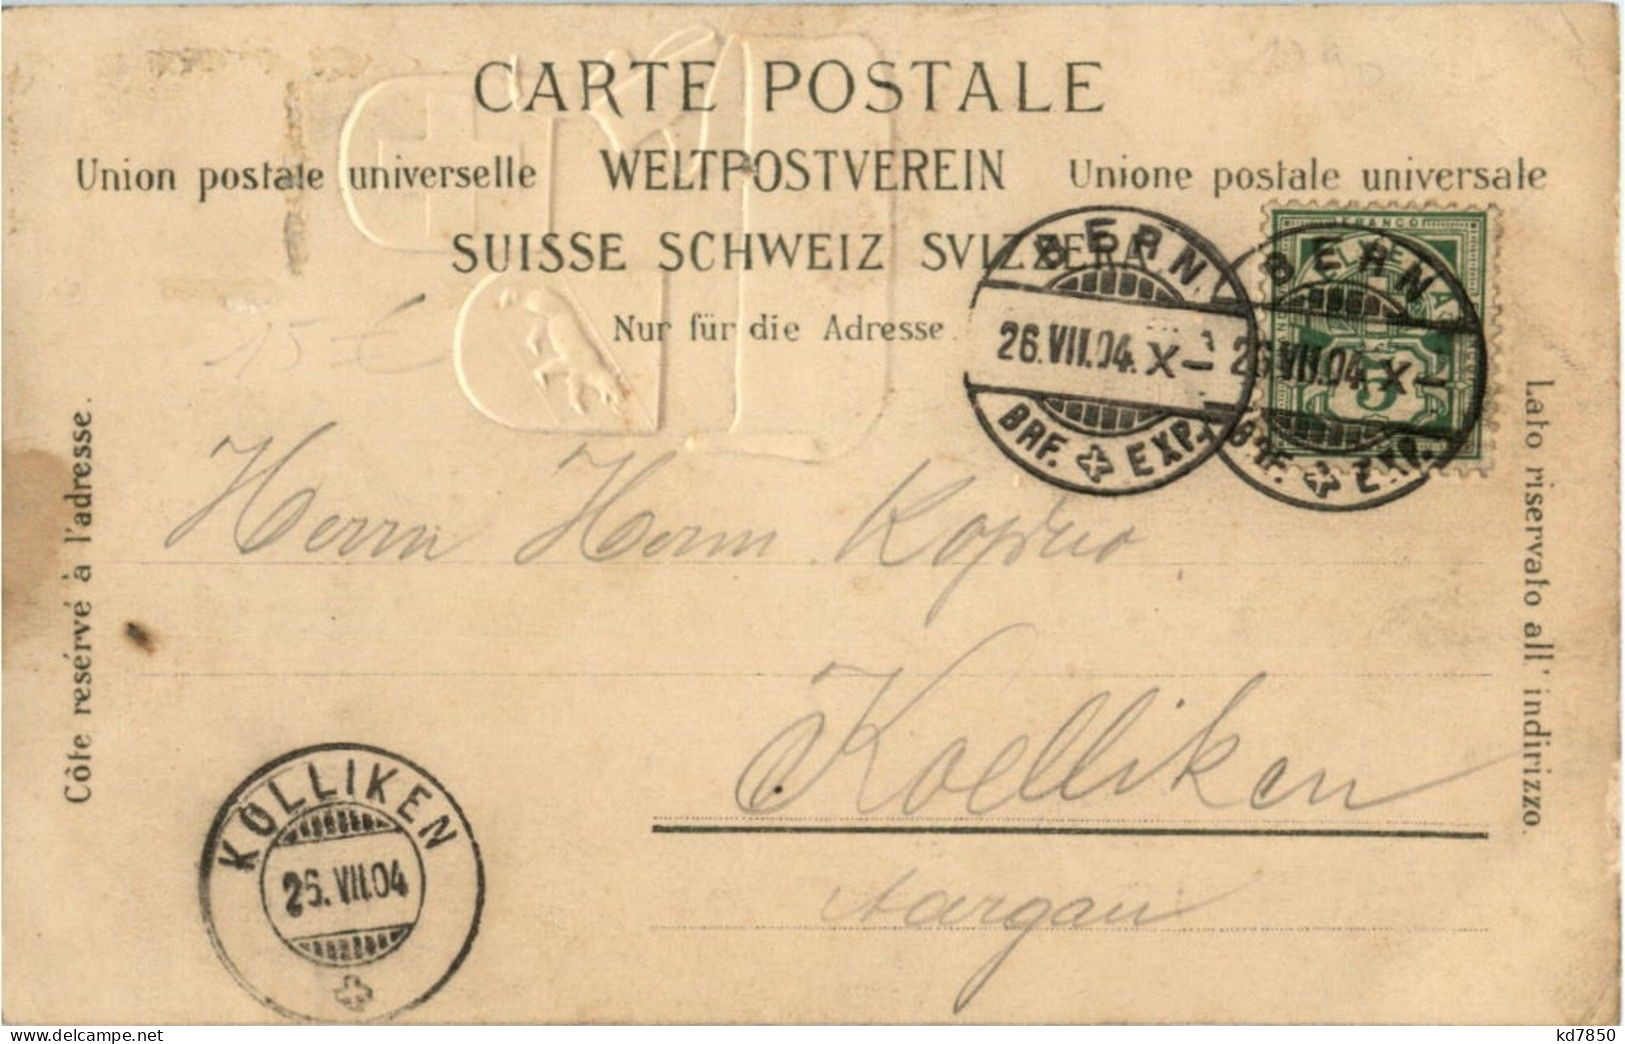 CARTE POSTALE
Union postale universelle WELTPOSTVEREIN Unione postale universale
SUISSE SCHWEIZ SVIZZERA
Nur für die Adresse.
15 €
BERN.
26.VII.04. X–
BRF. EXP.
BERN
26.VII.04. X–
BRF. EXP.
FRANCO
5
Côte resérvé à l'adresse.
Lato riservato all' indirizzo.
Herrn Herm.
Koelliken
Aargau
KÖLLIKEN
26.VII.04
kd7850